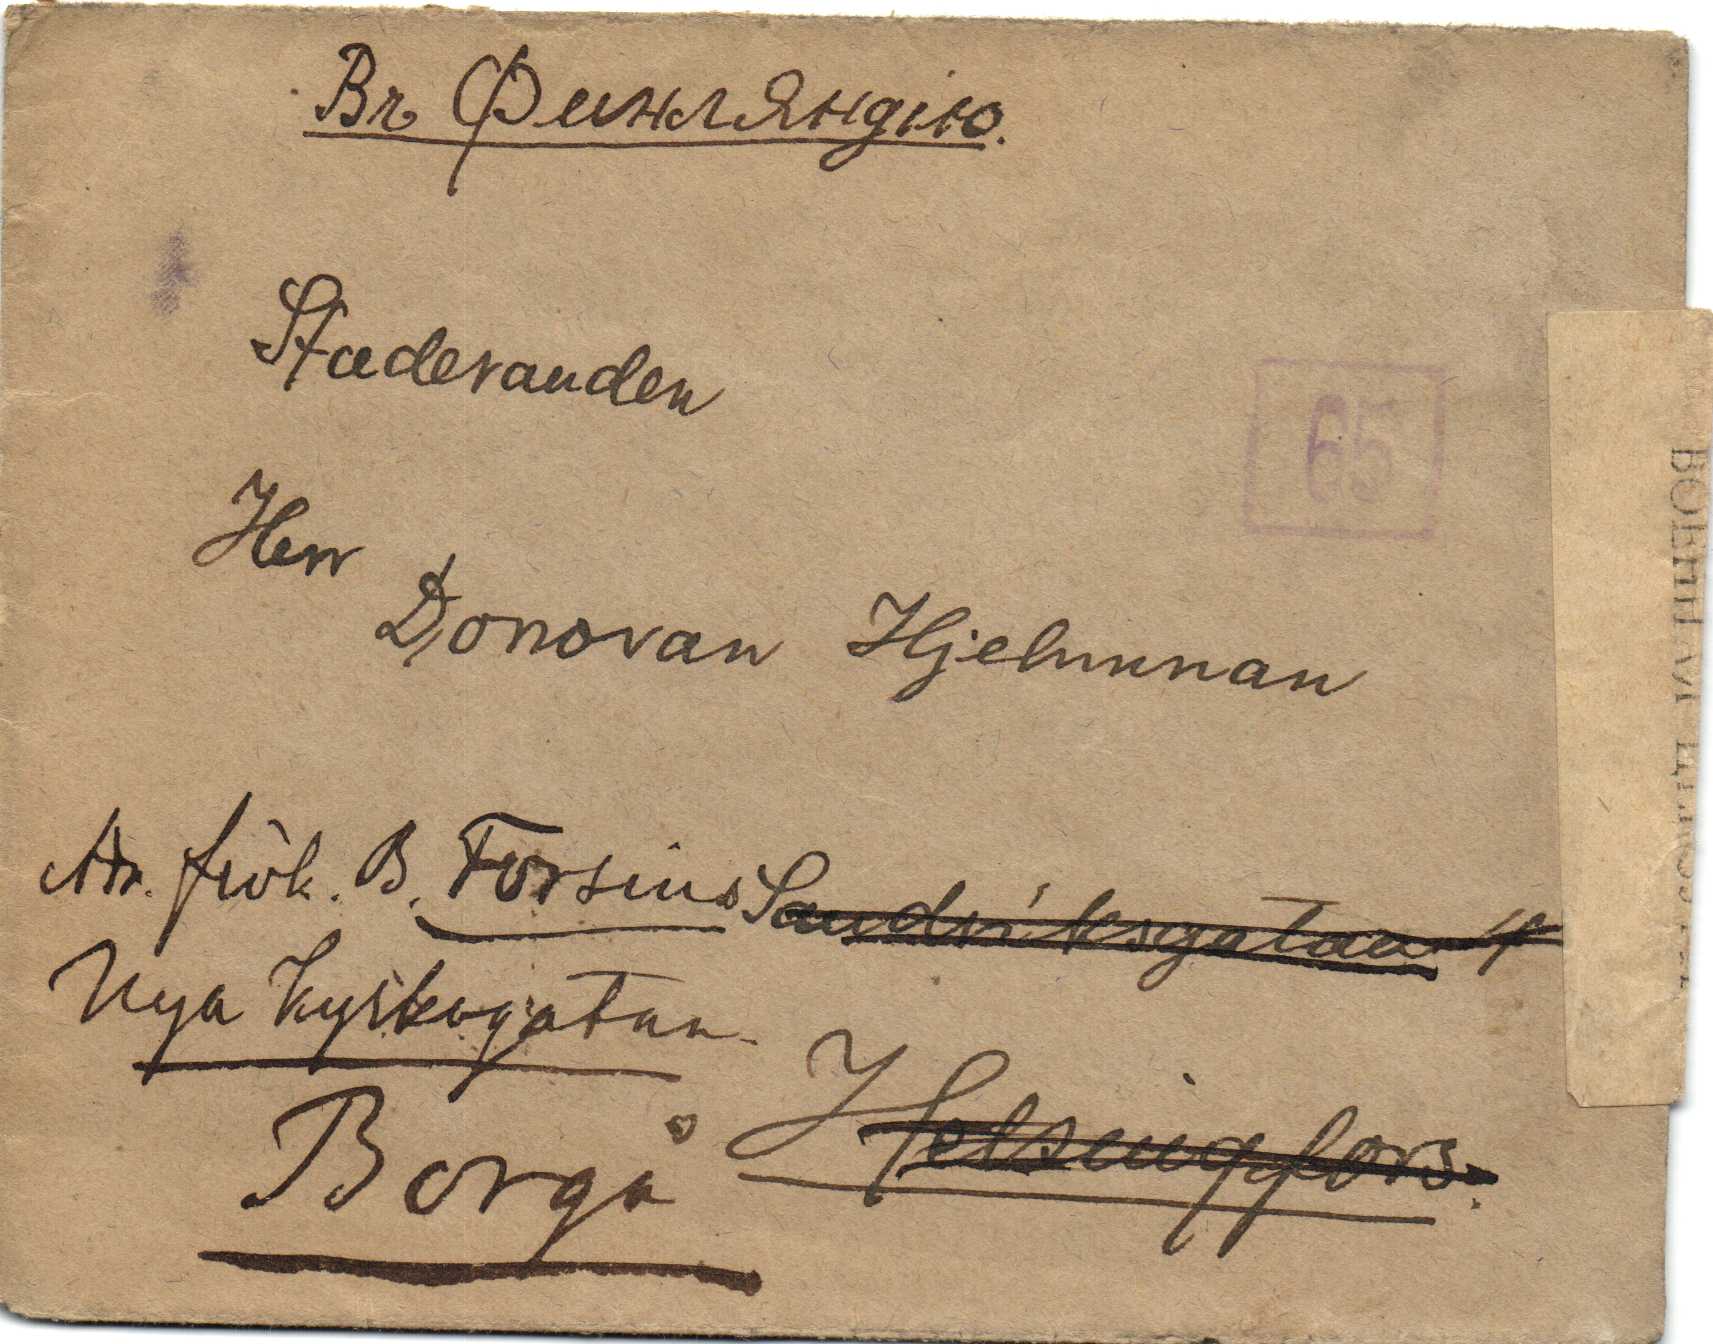 Въ Финляндію.
Studeranden
65
Herr
Donovan Hjelmman
Adr. frök. B. Forsius
Nya Kyrkogatan.
Borgå
Helsingfors.
ВОЕННОЙ ЦЕНЗУРОЙ